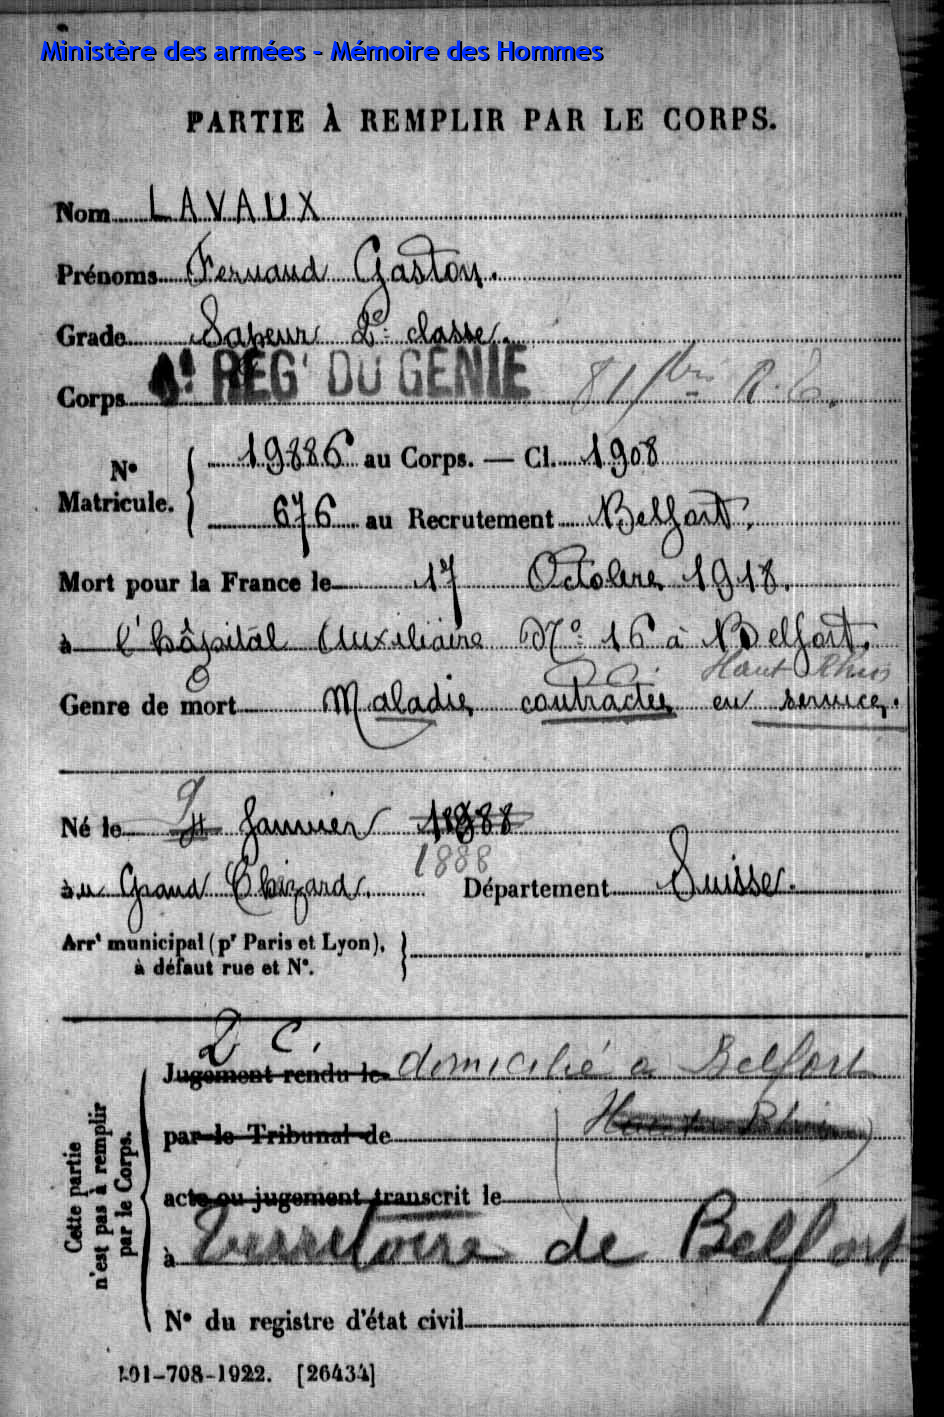 Ministère des armées - Mémoire des Hommes
PARTIE À REMPLIR PAR LE CORPS.
Nom LAVAUX
Prénoms Fernand Gaston.
Grade Sapeur 2e classe.
Corps RÉGt DU GÉNIE
No Matricule. 19886 au Corps. — Cl. 1908
676 au Recrutement Belfort.
Mort pour la France le 17 Octobre 1918.
à l'hôpital Auxiliaire No 16 à Belfort.
Haut Rhin
Genre de mort Maladie contractée en service.
9
Né le Janvier 1888
1888
au Grand Chizard. Département Suisse.
Arrt municipal (pr Paris et Lyon),
à défaut rue et No.
2 C.
Jugement rendu le domicilié à Belfort
par le Tribunal de (Haut Rhin)
acte ou jugement transcrit le
à Territoire de Belfort
No du registre d'état civil
Cette partie
n'est pas à remplir
par le Corps.
101-708-1922. [26434]